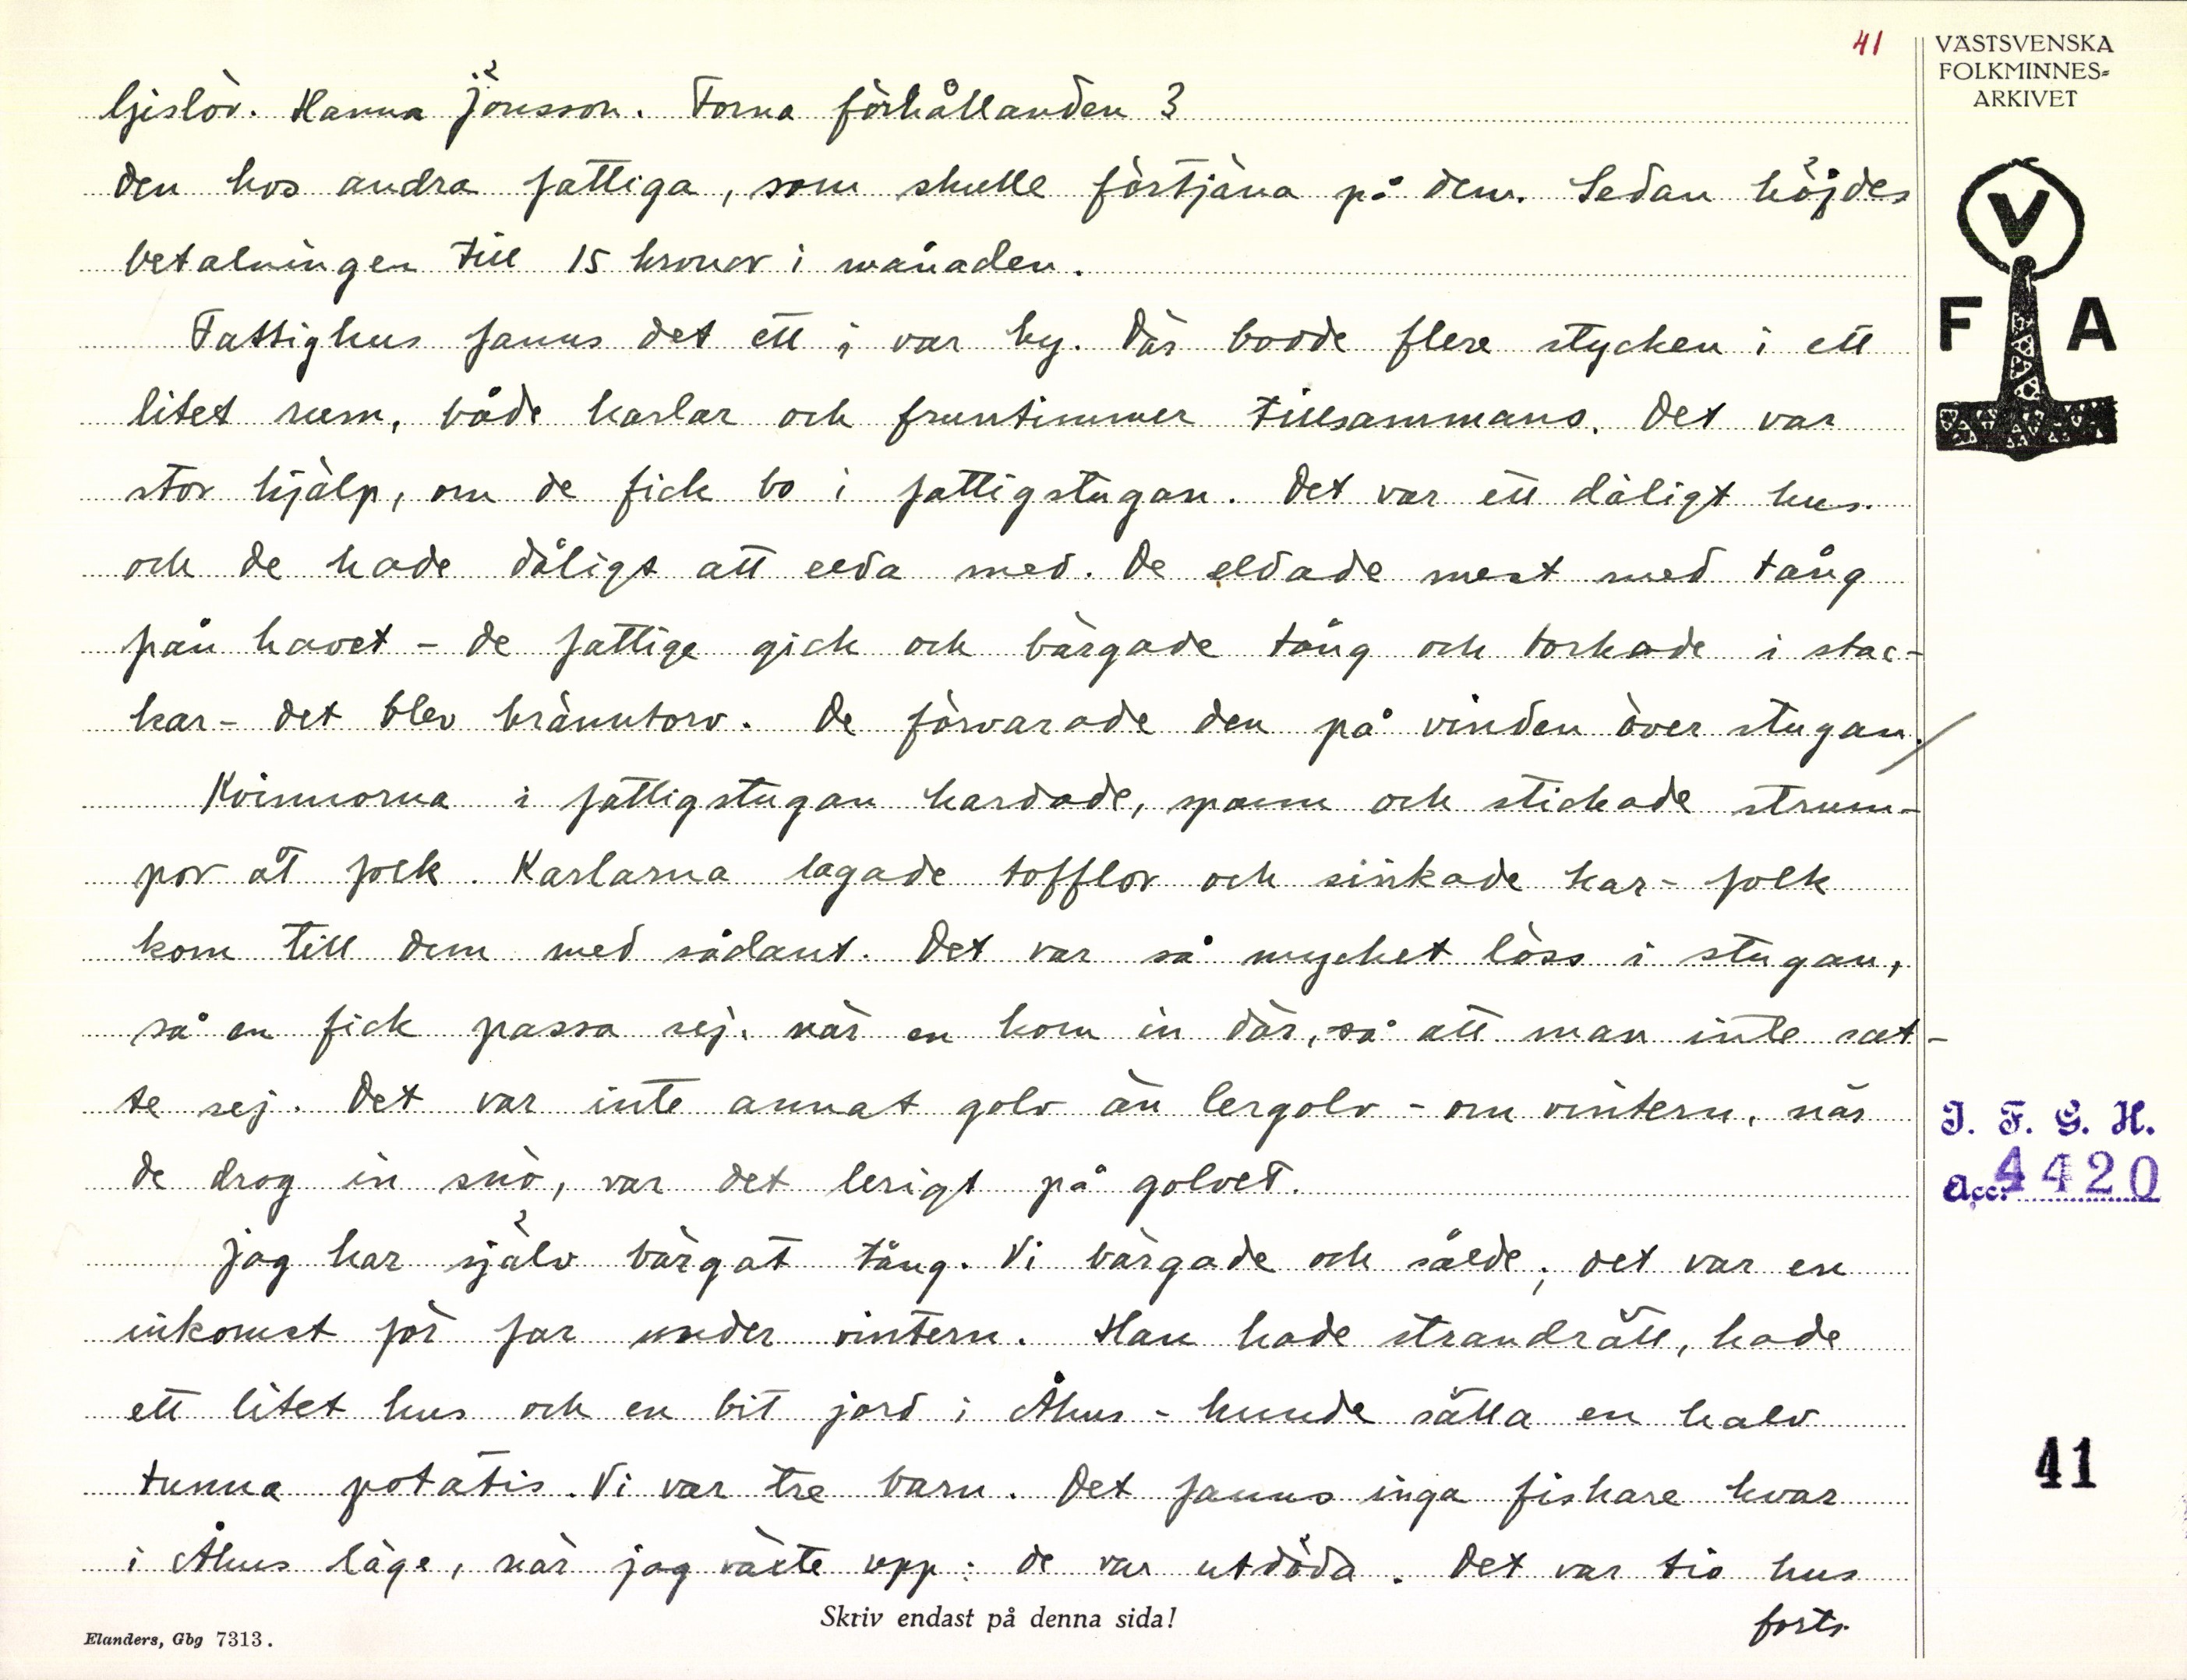 41
VÄSTSVENSKA
FOLKMINNES=
ARKIVET
Gislöv. Hanna Jönsson. Forna förhållanden 3
den hos andra fattiga, som skulle förtjäna på dem. Sedan höjdes
betalningen till 15 kronor i månaden.
Fattighus fanns det ett i vår by. Där bodde flere stycken i ett
litet rum, både karlar och fruntimmer tillsammans. Det var
stor hjälp, om de fick bo i fattigstugan. Det var ett dåligt hus.
och de hade dåligt att elda med. De eldade mest med tång
från havet - de fattige gick och bärgade tång och torkade i stac-
kar - det blev bränntorv. De förvarade den på vinden över stugan.
Kvinnorna i fattigstugan kardade, spann och stickade strum-
por åt folk. Karlarna lagade tofflor och sinkade kar - folk
kom till dem med sådant. Det var så mycket löss i stugan,
så en fick passa sej, när en kom in där, så att man inte sat-
te sej. Det var inte annat golv än lergolv - om vintern, när
de drog in snö, var det lerigt på golvet.
Jag har själv bärgat tång. Vi bärgade och sålde; det var en
inkomst för far under vintern. Han hade strandrätt, hade
ett litet hus och en bit jord i Åhus - kunde sätta en halv
tunna potatis. Vi var tre barn. Det fanns inga fiskare kvar
i Åhus läge, när jag växte opp: de var utdöda. Det var tio hus
forts.
V
F A
I. F. G. H.
Acc: 4420
41
Skriv endast på denna sida!
Elanders, Gbg 7313.